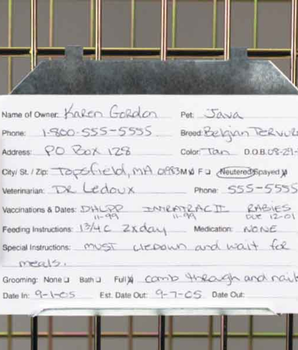 Name of Owner: Karen Gordon Pet: Java
Phone: 1-800-555-5555 Breed: Belgian Tervure
Address: PO Box 128 Color: Tan D.O.B. 08-29-
City/ St. / Zip: Topsfield, MA 01983 M F Neutered Spayed
Veterinarian: Dr Ledoux Phone: 555-5555
Vaccinations & Dates: DHLPP INTRATRAC II RABIES
11-99 11-99 DUE 12-01
Feeding Instructions: 1 3/4 C 2x day Medication: NONE
Special Instructions: MUST lie down and wait for
meals.
Grooming: None Bath Full comb through and nails
Date In: 9-1-05 Est. Date Out: 9-7-05 Date Out: